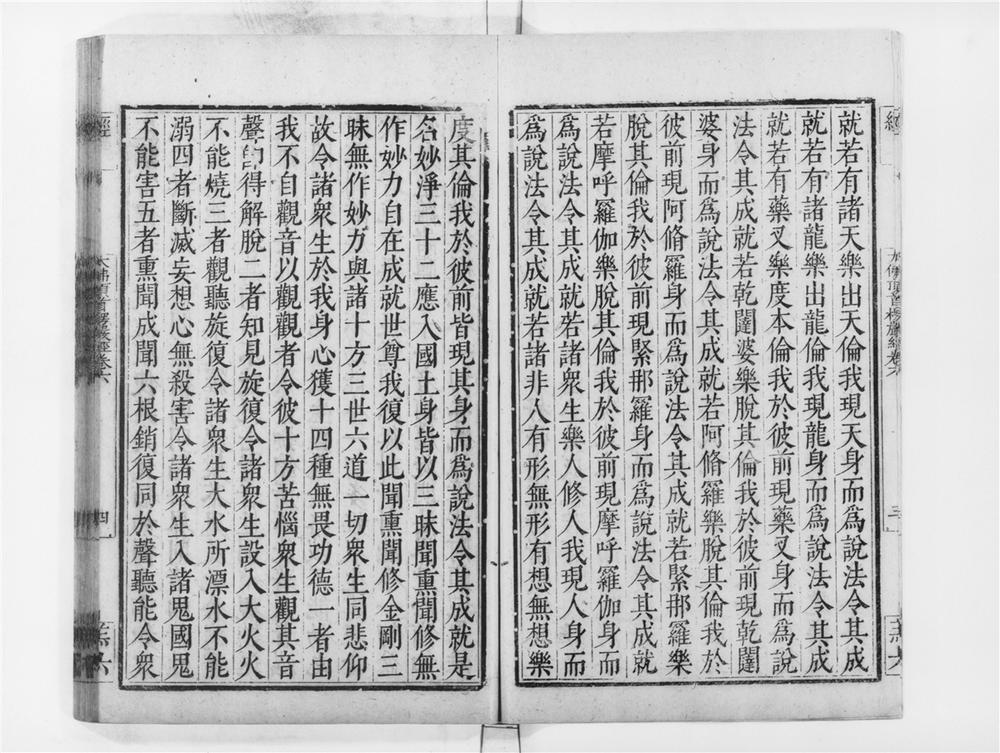 經
大佛頂首楞嚴經卷六
三
羔六
就若有諸天樂出天倫我現天身而爲說法令其成
就若有諸龍樂出龍倫我現龍身而爲說法令其成
就若有藥叉樂度本倫我於彼前現藥叉身而爲說
法令其成就若乾闥婆樂脫其倫我於彼前現乾闥
婆身而爲說法令其成就若阿脩羅樂脫其倫我於
彼前現阿脩羅身而爲說法令其成就若緊那羅樂
脫其倫我於彼前現緊那羅身而爲說法令其成就
若摩呼羅伽樂脫其倫我於彼前現摩呼羅伽身而
爲說法令其成就若諸衆生樂人修人我現人身而
爲說法令其成就若諸非人有形無形有想無想樂
度其倫我於彼前皆現其身而爲說法令其成就是
名妙淨三十二應入國土身皆以三昧聞熏聞修無
作妙力自在成就世尊我復以此聞熏聞修金剛三
昧無作妙力與諸十方三世六道一切衆生同悲仰
故令諸衆生於我身心獲十四種無畏功德一者由
我不自觀音以觀觀者令彼十方苦惱衆生觀其音
聲卽得解脫二者知見旋復令諸衆生設入大火火
不能燒三者觀聽旋復令諸衆生大水所漂水不能
溺四者斷滅妄想心無殺害令諸衆生入諸鬼國鬼
不能害五者熏聞成聞六根銷復同於聲聽能令衆
經
大佛頂首楞嚴經卷六
四
羔六